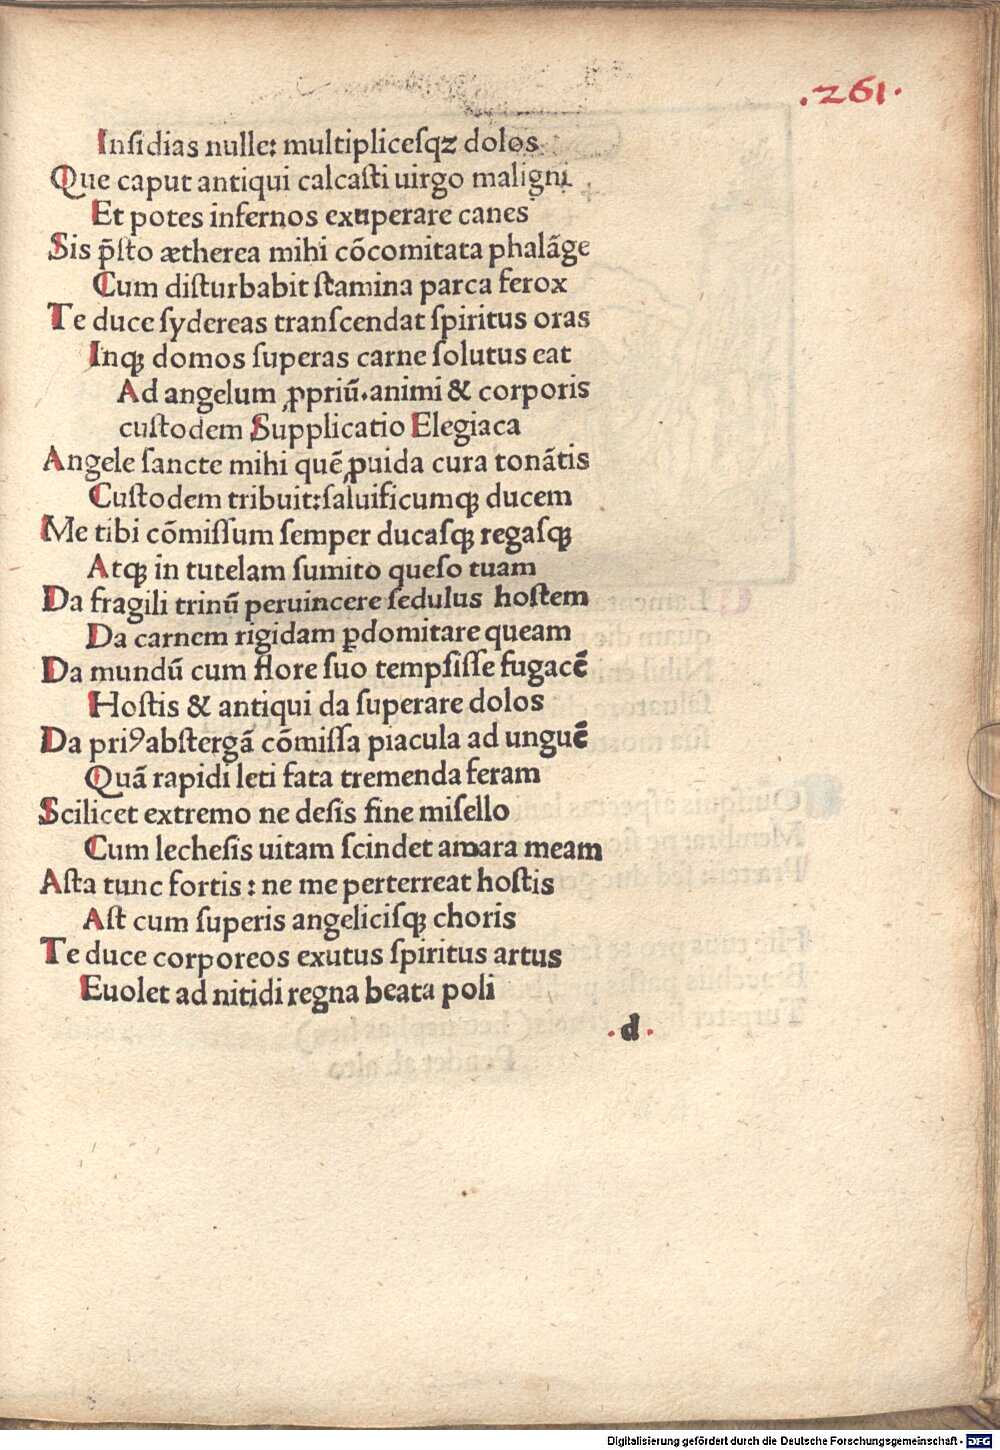 .261.
Inſidias nulle: multipliceſqꝫ dolos
Que caput antiqui calcaſti uirgo maligni
Et potes infernos exuperare canes
Sis p̄ſto ætherea mihi cōcomitata phalāge
Cum diſturbabit ſtamina parca ferox
Te duce ſydereas tranſcendat ſpiritus oras
Inqꝫ domos ſuperas carne ſolutus eat
Ad angelum ꝓpriū.animi & corporis
cuſtodem Supplicatio Elegiaca
Angele ſancte mihi quē ꝓuida cura tonātis
Cuſtodem tribuit:ſaluificumqꝫ ducem
Me tibi cōmiſſum ſemper ducaſqꝫ regaſqꝫ
Atqꝫ in tutelam ſumito queſo tuam
Da fragili trinū peruincere ſedulus hoſtem
Da carnem rigidam ꝑdomitare queam
Da mundū cum flore ſuo tempſiſſe fugacē
Hoſtis & antiqui da ſuperare dolos
Da priꝰ abſtergā cōmiſſa piacula ad unguē
Quā rapidi leti fata tremenda feram
Scilicet extremo ne deſis fine miſello
Cum lecheſis uitam ſcindet amara meam
Aſta tunc fortis: ne me perterreat hoſtis
Aſt cum ſuperis angeliciſqꝫ choris
Te duce corporeos exutus ſpiritus artus
Euolet ad nitidi regna beata poli
.d.
Digitalisierung gefördert durch die Deutsche Forschungsgemeinschaft - DFG